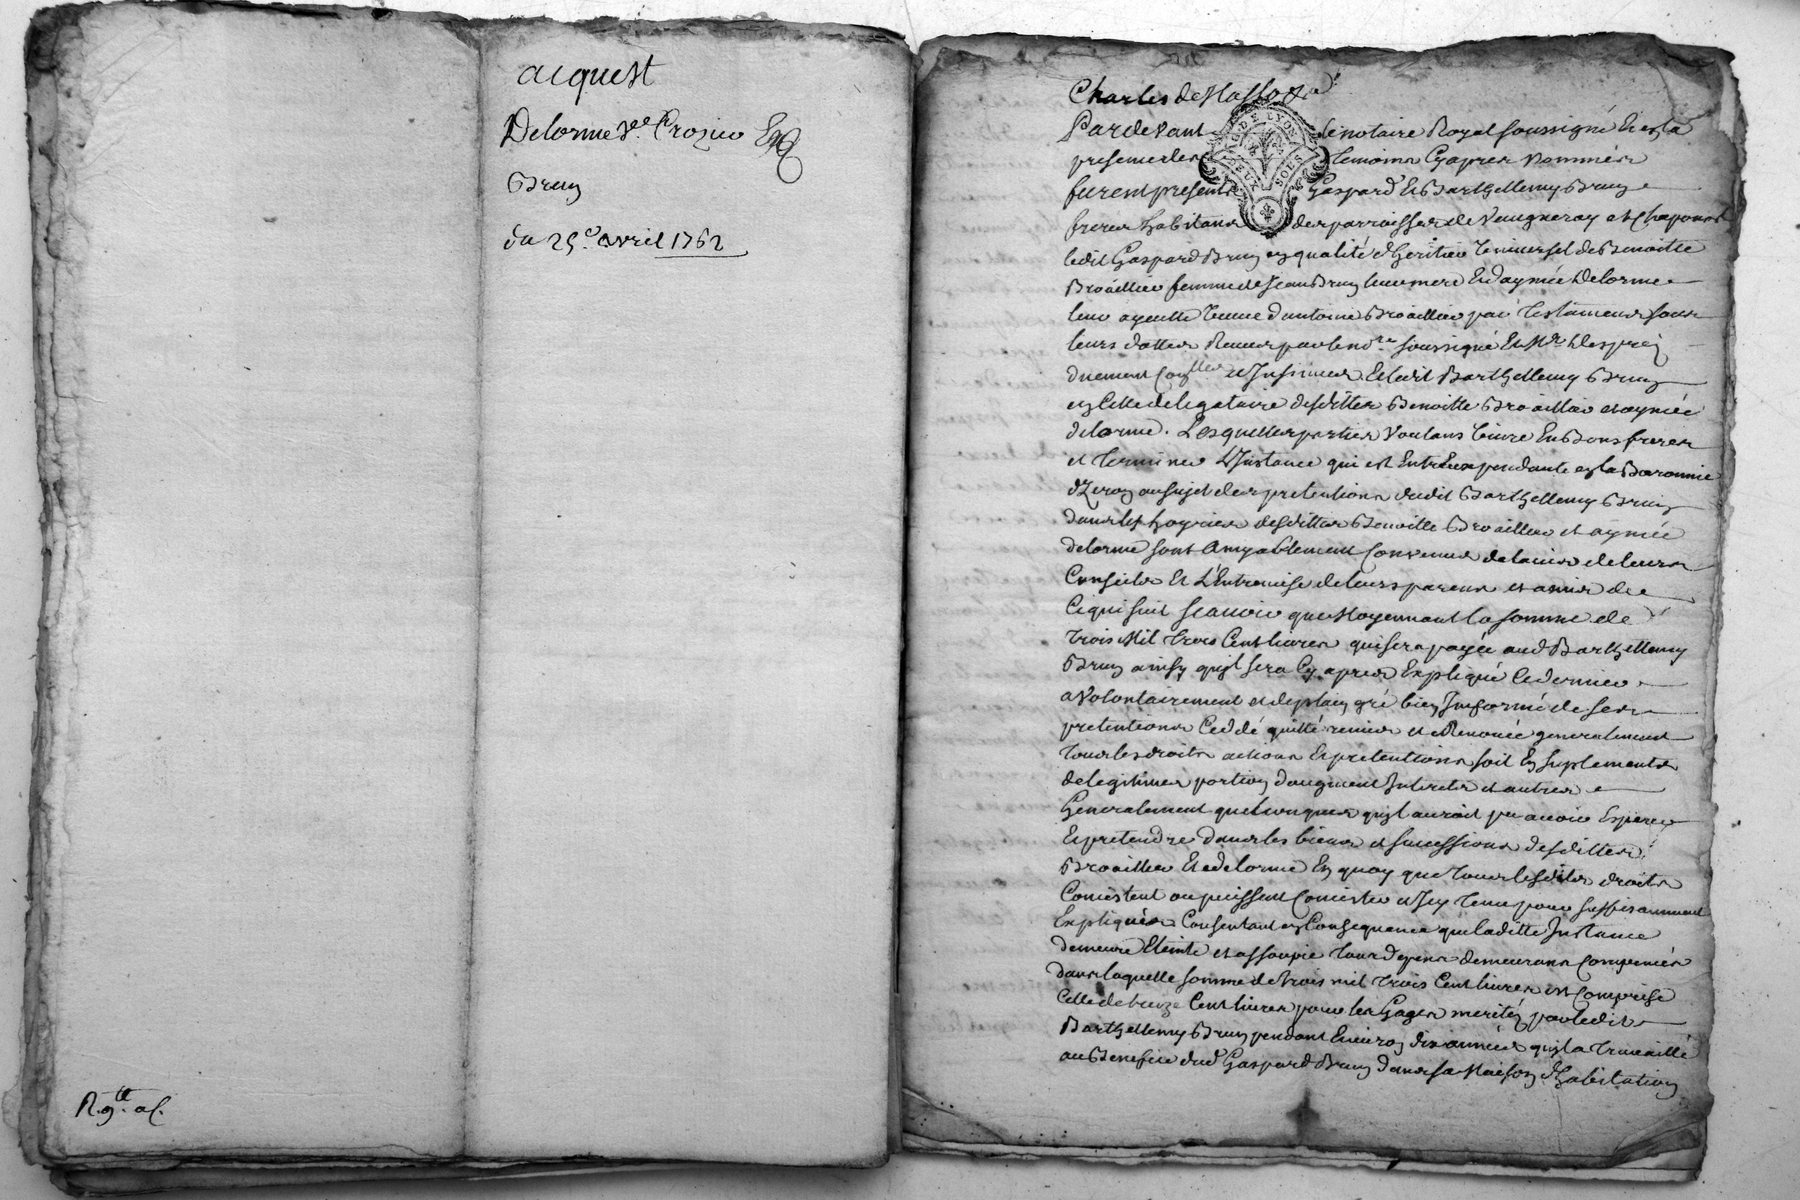 acquest
Delorme Ve. Crozier
Brun
du 25e. avril 1762
R. 9tt.
Charles de
Pardevant le notaire Royal soussigné Et en la
GÉN. DE LYON
DEUX SOLS
presence des temoins Cyapres nommés
furent presents Gaspard Et Barthellemy Brun
freres habitans des parroisses de Vaugneray et Chaponost
ledit Gaspard Brun en qualité d'heritier universel de Benoitte
Broaillier femme de Jean Brun leur mere Et d'aymée Delorme
leur ayeulle veuve d'antoine Broaillier par testaments sous
leurs dattes Receus par le nore. soussigné Et Mr.
duement et Insinués Et ledit Barthellemy Brun
en celle de legataire desdittes Benoitte Broaillier et aymée
delorme. Lesquelles parties voulans vivre En Bons freres
et terminer L'Instance qui est Entr'Eux pendante en la Baronnie
d'Yzeron au sujet des pretentions dudit Barthellemy Brun
dans les hoyries desdittes Benoitte Broaillier et aymée
delorme sont amyablement Convenus de l'avis de leurs
Conseils Et L'Entremise de leurs parens et amis de
Ce qui suit scavoir que Moyennant la somme de
trois Mil trois Cent livres qui sera payée aud Barthellemy
Brun ainsy qu'il sera Cy apres Expliqué ce dernier
a volontairement et de plain gré bien Informé de ses
pretentions Ceddé quitté remis et Renoncé generalement
tous les droits actions Et pretentions soit En suplements
de legitimes portion d'augment Interets et autres
Generalement quelconques qu'il auroit pu avoir Esperer
Et pretendre dans les biens et successions desdittes
Broaillier Et delorme En quoy que tous lesdits droits
Consistent ou puissent Consister et Icy tenu pour suffisamment
Expliqués Consentant en Consequence que laditte Instance
demeure Eteinte et assoupie tous depens demeurans compensés
dans laquelle somme de trois mil trois Cent livres est Comprise
Celle de treize Cent livres pour les Gages merités par ledit
Barthellemy Brun pendant Environ dix années qu'il a travaillé
au Benefice dud Gaspard Brun dans sa Maison d'habitation